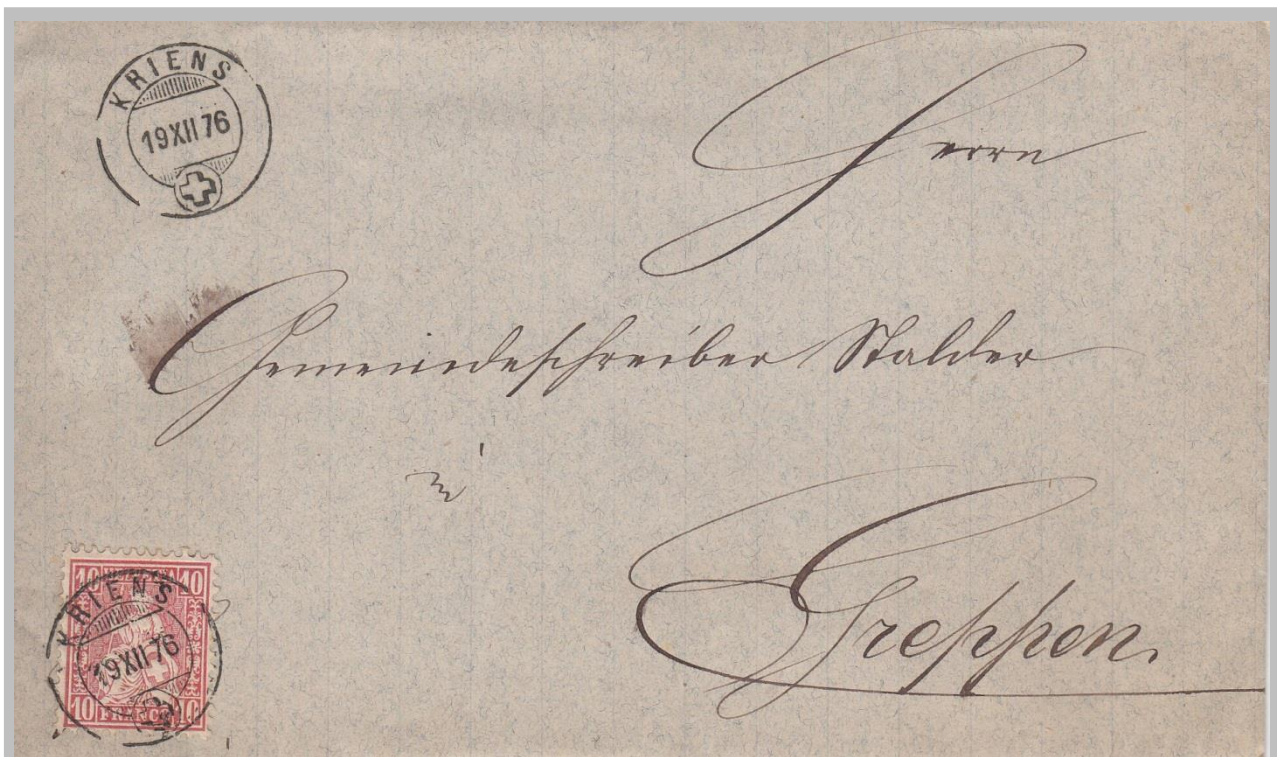 KRIENS
19 XII 76
Herrn
Gemeindeschreiber Stalder
in
Greppen.
10 10
KRIENS
19 XII 76
10 FRANCO 10